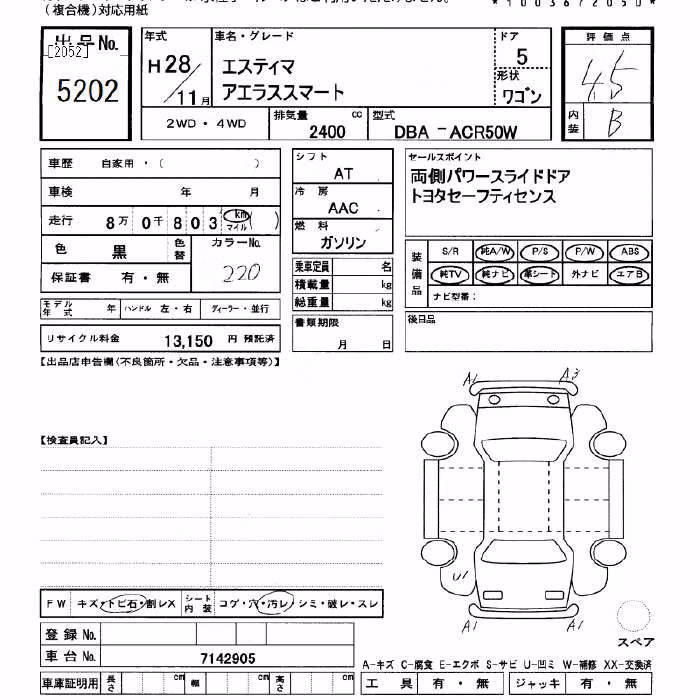 (複合機)対応用紙
*10036/2050*
出品No.
[2052]
5202
年式
H28/11月
車名・グレード
エスティマ
アエラススマート
ドア
5
形状
ワゴン
評価点
4.5
内装
B
2WD・4WD
排気量
2400
cc
型式
DBA-ACR50W
車歴 自家用・( )
車検 年 月
走行 8万0千803 km マイル ( )
色 黒
色替
カラーNo.
220
保証書 有・無
モデル年式 年
ハンドル 左・右
ディーラー・並行
リサイクル料金 13,150 円 預託済
シフト
AT
冷房
AAC
燃料
ガソリン
乗車定員 名
積載量 kg
総重量 kg
書類期限
月 日
セールスポイント
両側パワースライドドア
トヨタセーフティセンス
装備品
S/R 純A/W P/S P/W ABS
純TV 純ナビ 革シート 外ナビ エアB
ナビ型番:
後日品
【出品店申告欄(不良箇所・欠品・注意事項等)】
【検査員記入】
A1
A3
U1
A1
A1
スペア
FW キズ・トビ石・割レX
シート内装 コゲ・穴・汚レ・シミ・破レ・スレ
登録No.
車台No. 7142905
車庫証明用 長さ cm 幅 cm 高さ cm
A-キズ C-腐食 E-エクボ S-サビ U-凹ミ W-補修 XX-交換済
工具 有・無 ジャッキ 有・無